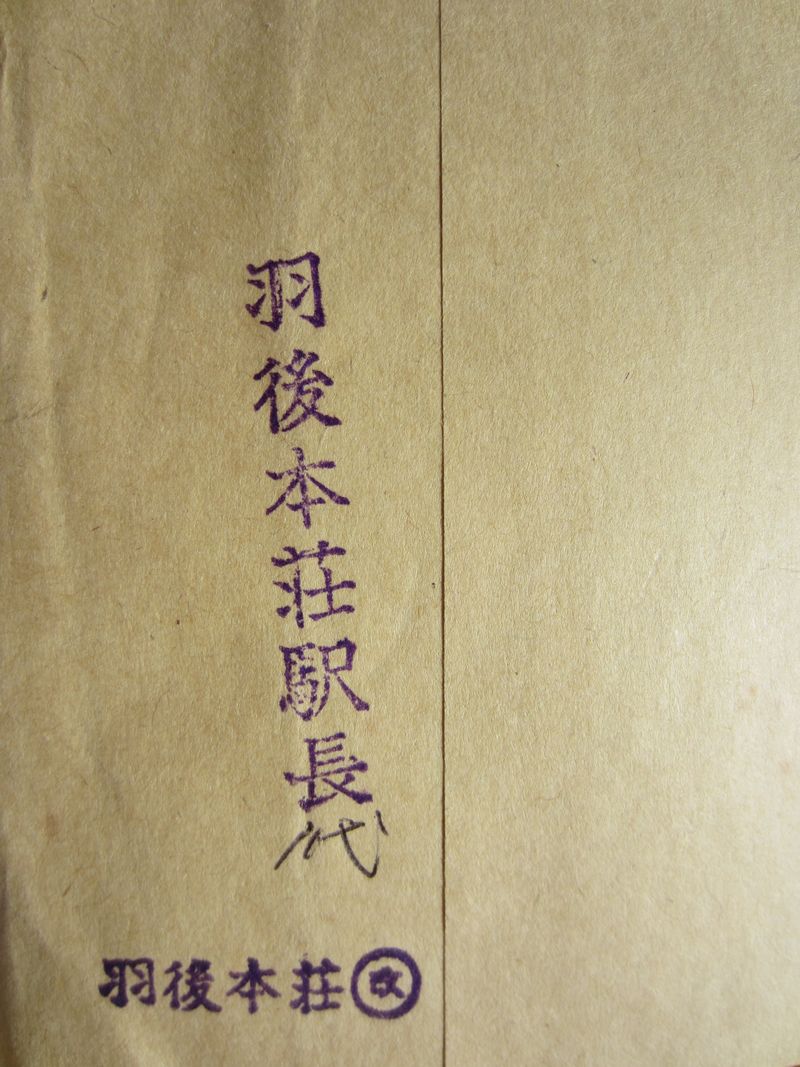 羽後本荘駅長代
羽後本荘㊞改